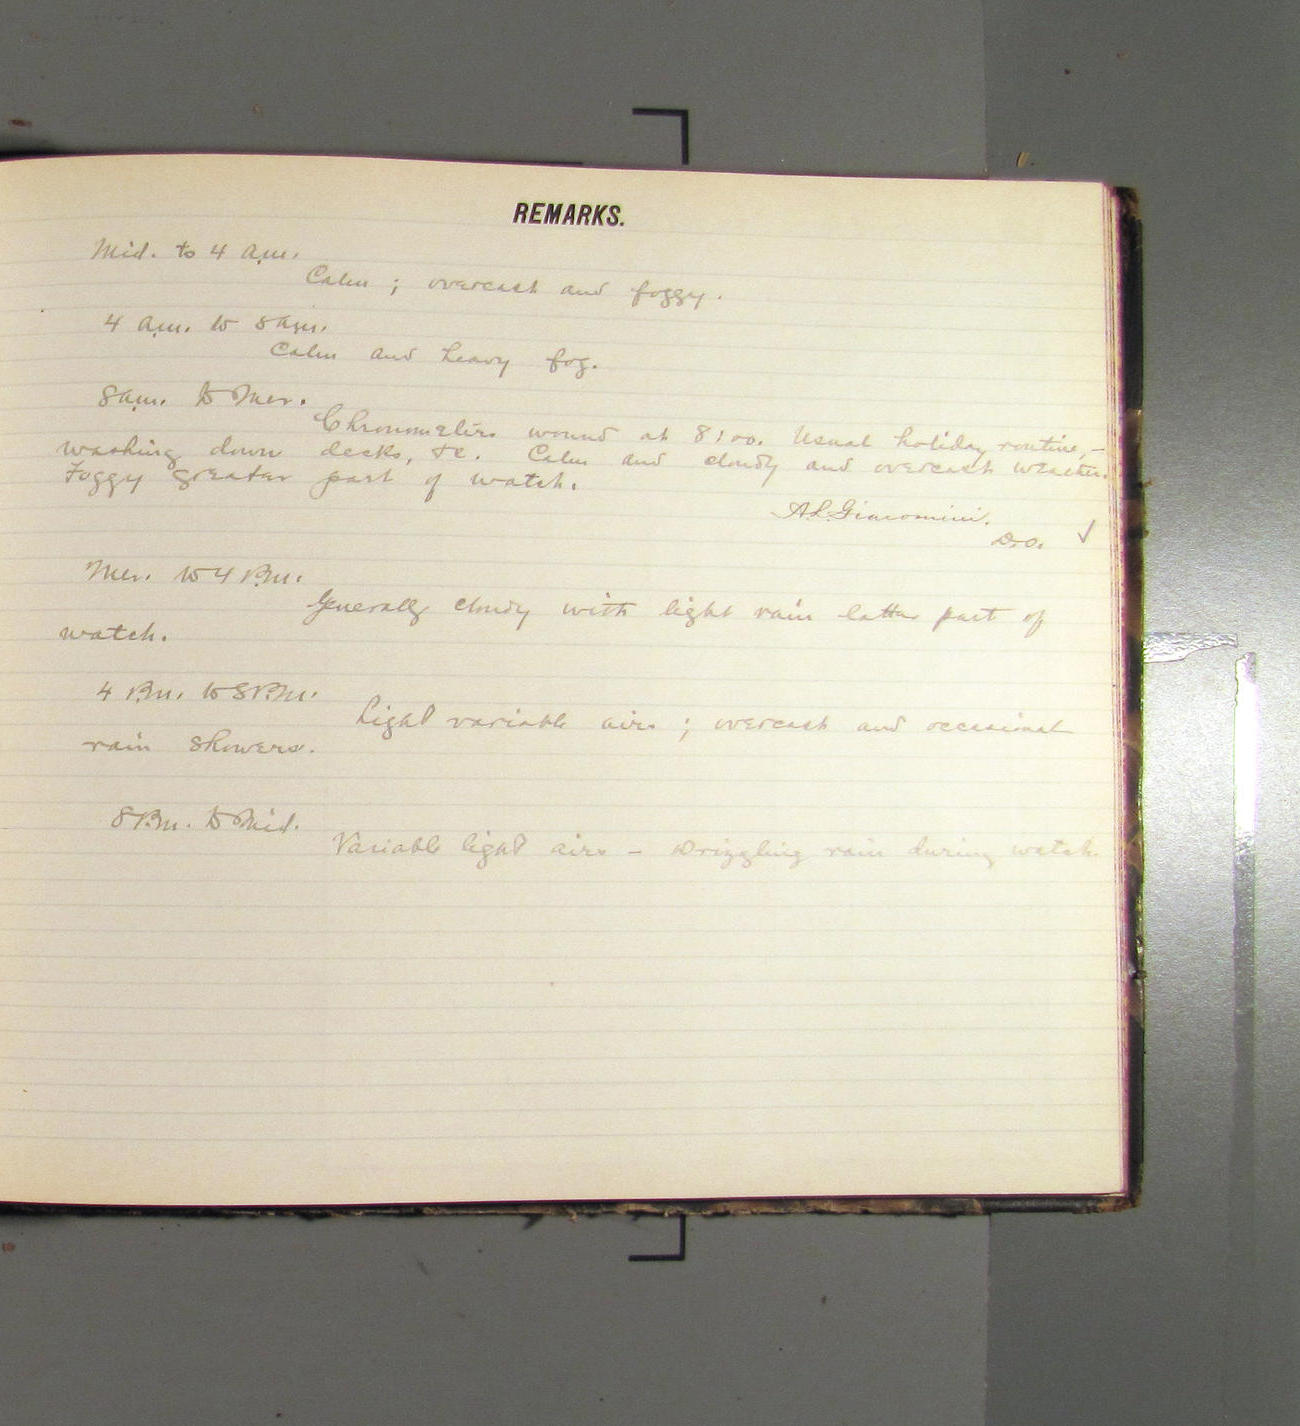 REMARKS.
Mid. to 4 a.m.
Calm ; overcast and foggy.
4 a.m. to 8 a.m.
Calm and heavy fog.
8 a.m. to Mer.
Chronometers wound at 8:00. Usual holiday routine,-
washing down decks, &c. Calm and cloudy and overcast weather.
Foggy greater part of watch.
A.L. Giacomini.
D.O. ✓
Mer. to 4 P.m.
Generally cloudy with light rain latter part of
watch.
4 P.m. to 8 P.m.
Light variable airs ; overcast and occasional
rain showers.
8 P.m. to Mid.
Variable light airs - Drizzling rain during watch.